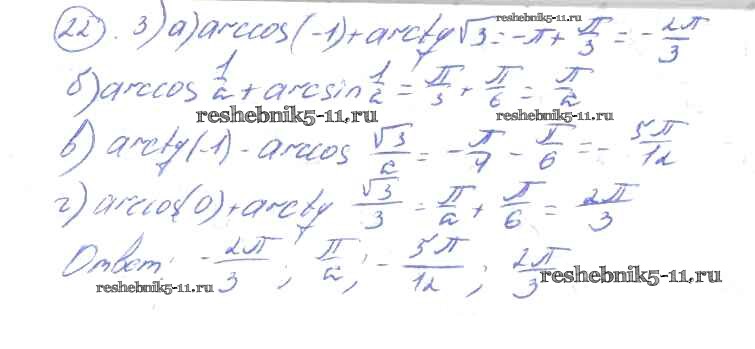 22. 3) а) arccos(-1) + arctg √3 = -π + π/3 = -2π/3
reshebnik5-11.ru
б) arccos 1/2 + arcsin 1/2 = π/3 + π/6 = π/2
reshebnik5-11.ru
в) arctg(-1) - arccos √3/2 = -π/4 - π/6 = -5π/12
г) arccos(0) + arctg √3/3 = π/2 + π/6 = 2π/3
Ответ: -2π/3; π/2; -5π/12; 2π/3
reshebnik5-11.ru
reshebnik5-11.ru